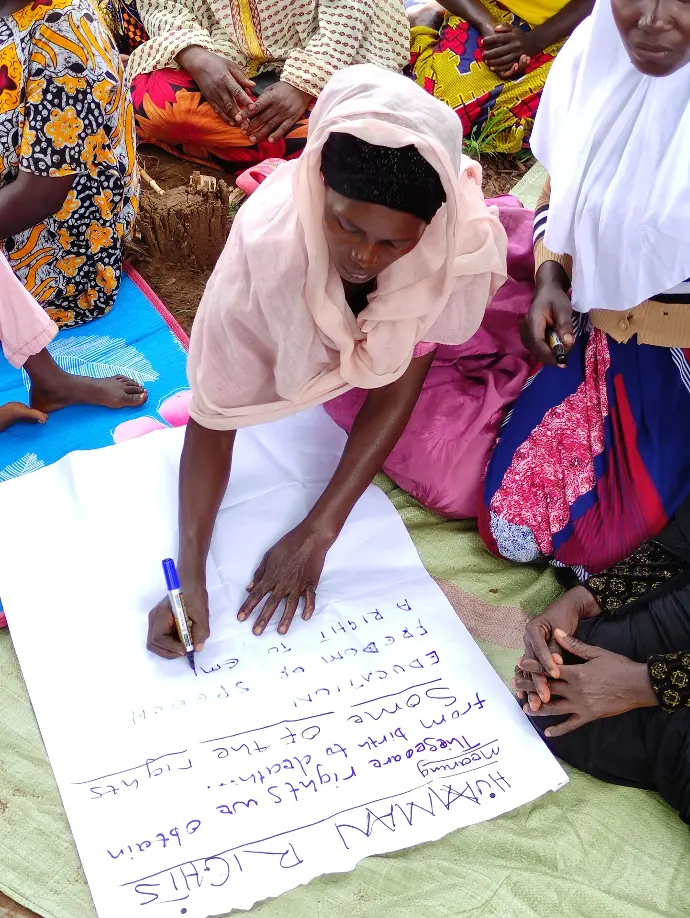 HUMAN RIGHTS
meaning
These are rights we obtain
from birth to death...
Some of the rights
EDUCATION
FREDOM OF SPEECH
A RIGHT TO em